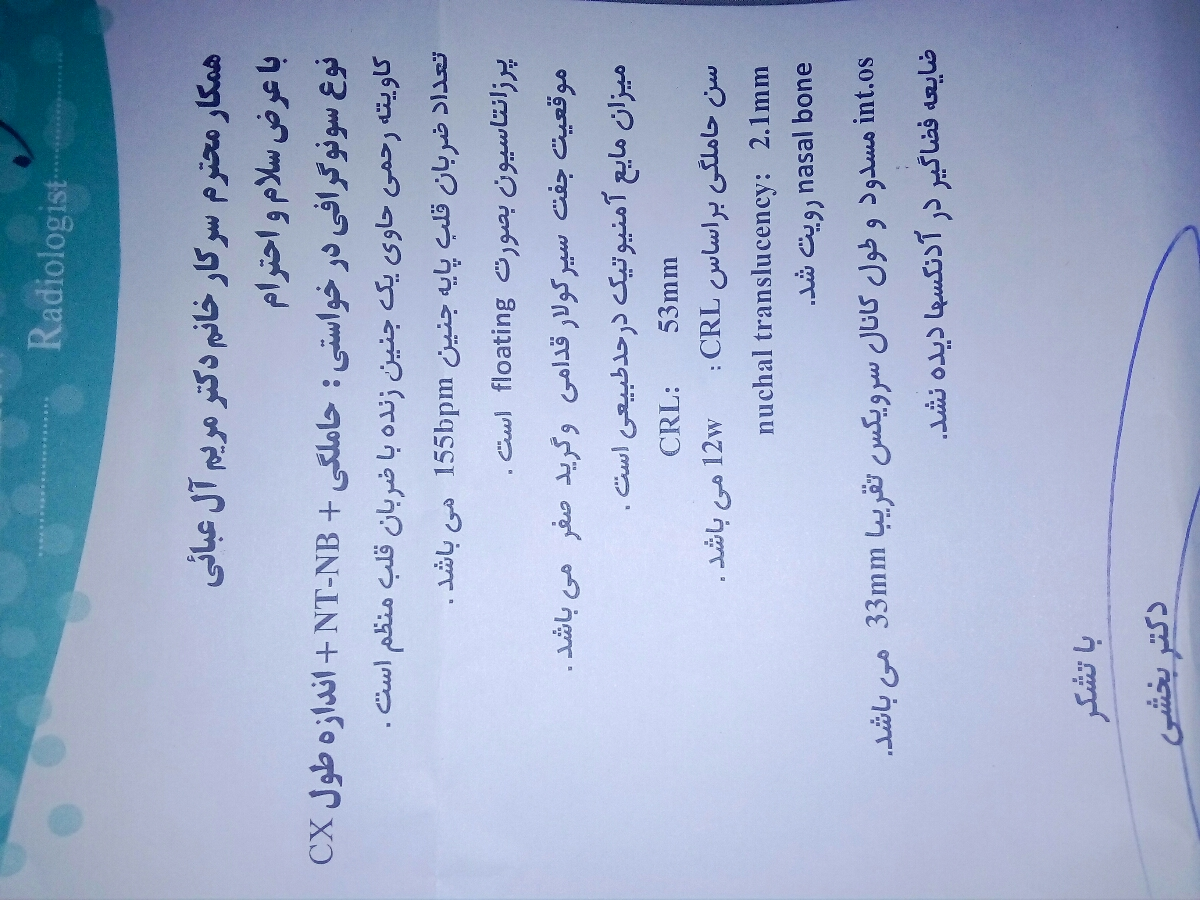 Radiologist
همکار محترم سرکار خانم دکتر مریم آل عبائی
با عرض سلام و احترام
نوع سونوگرافی در خواستی : حاملگی + NT-NB + اندازه طول CX
کاویته رحمی حاوی یک جنین زنده با ضربان قلب منظم است .
تعداد ضربان قلب پایه جنین 155bpm می باشد .
پرزانتاسیون بصورت floating است .
موقعیت جفت سیرکولار قدامی وگرید صفر می باشد .
میزان مایع آمنیوتیک درحدطبیعی است .
CRL: 53mm
سن حاملگی براساس CRL : 12w می باشد .
nuchal translucency: 2.1mm
nasal bone رویت شد.
int.os مسدود و طول کانال سرویکس تقریبا 33mm می باشد.
ضایعه فضاگیر در آدنکسها دیده نشد.
با تشکر
دکتر بخشی